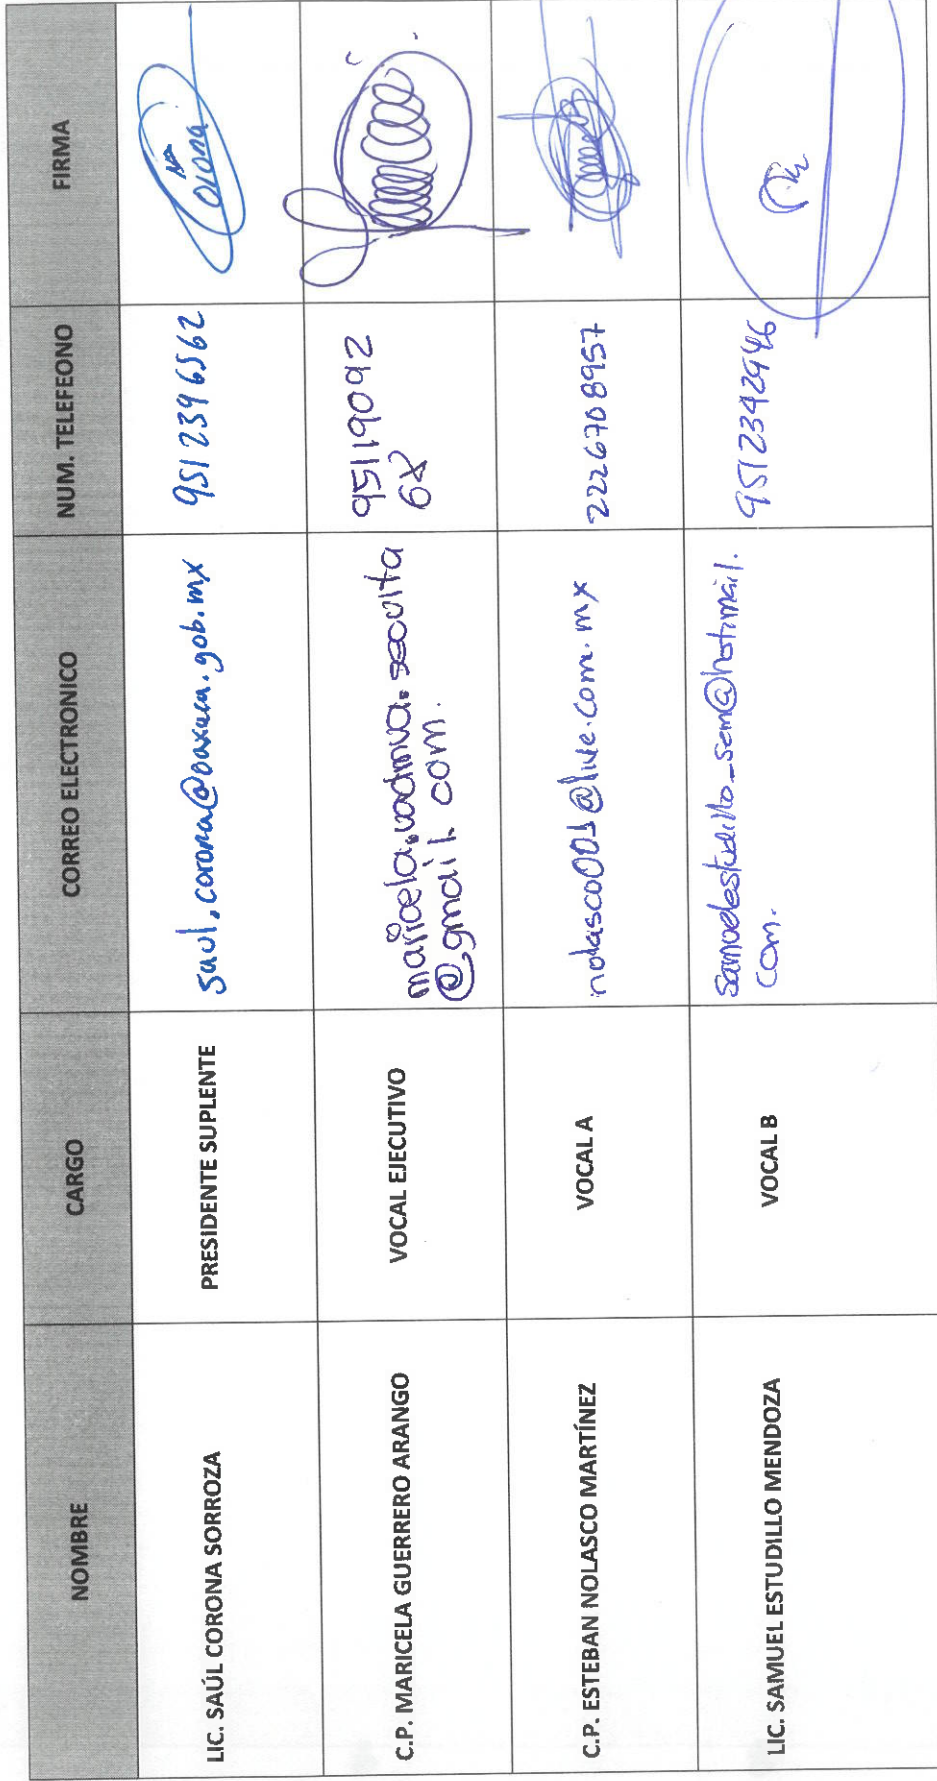 NOMBRE CARGO CORREO ELECTRONICO NUM. TELEFEONO FIRMA
LIC. SAÚL CORONA SORROZA PRESIDENTE SUPLENTE saul.corona@oaxaca.gob.mx 951 239 6562 Corona
C.P. MARICELA GUERRERO ARANGO VOCAL EJECUTIVO
@gmail.com.
95119092
C.P. ESTEBAN NOLASCO MARTÍNEZ VOCAL A nolasco001@live.com.mx 2226708957
LIC. SAMUEL ESTUDILLO MENDOZA VOCAL B samuelestudillo_sem@hotmail. 9512392946
com.